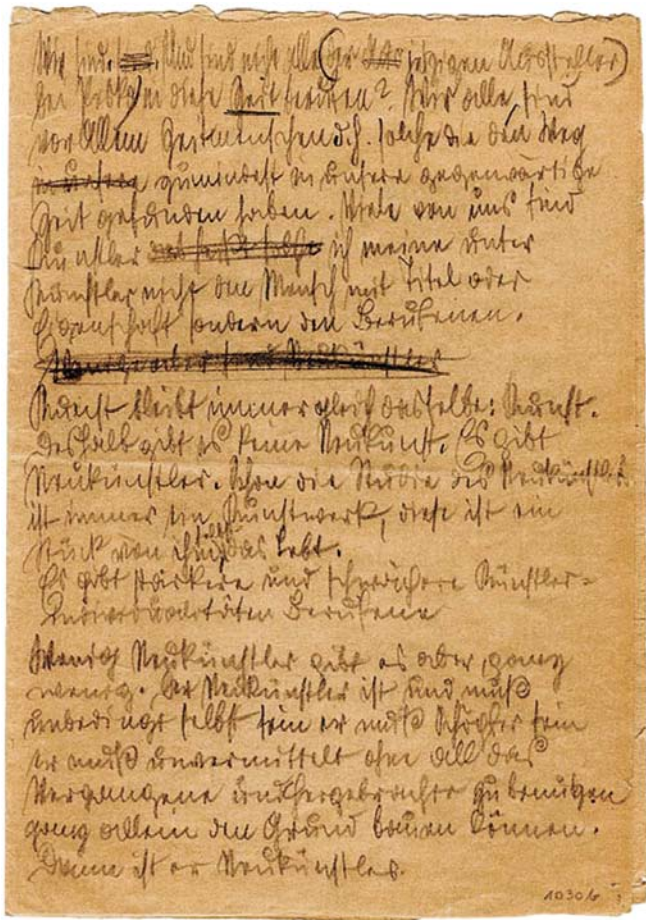 Wir sind. Und sind nicht alle (der jetzigen Aussteller)
bei Pisko) in diese Zeit berufen? Wir alle sind
vor Allem Zeitmenschen d.h. solche die den Weg
zumindest in unsere gegenwärtige
Zeit gefunden haben. Viele von uns sind
Künstler das heißt solche ich meine unter
Künstler nicht den Mensch mit Titel oder
Eigenschaft sondern den Berufenen.
sind Neukünstler
Kunst bleibt immer gleich dasselbe: Kunst.
Deshalb gibt es keine Neukunst. Es gibt
Neukünstler. Schon die Studie des Neukünstlers
ist immer ein Kunstwerk, diese ist ein
Stück von ihm, das lebt.
Es gibt stärkere und schwächere Künstler-
Individualitäten Berufene
Wenig Neukünstler gibt es aber, ganz
wenig. Der Neukünstler ist und muß
unbedingt selbst sein er muß Schöpfer sein
er muß unvermittelt ohne all das
Vergangene und Hergebrachte zu benützen
ganz allein den Grund bauen können.
Dann ist er Neukünstler.